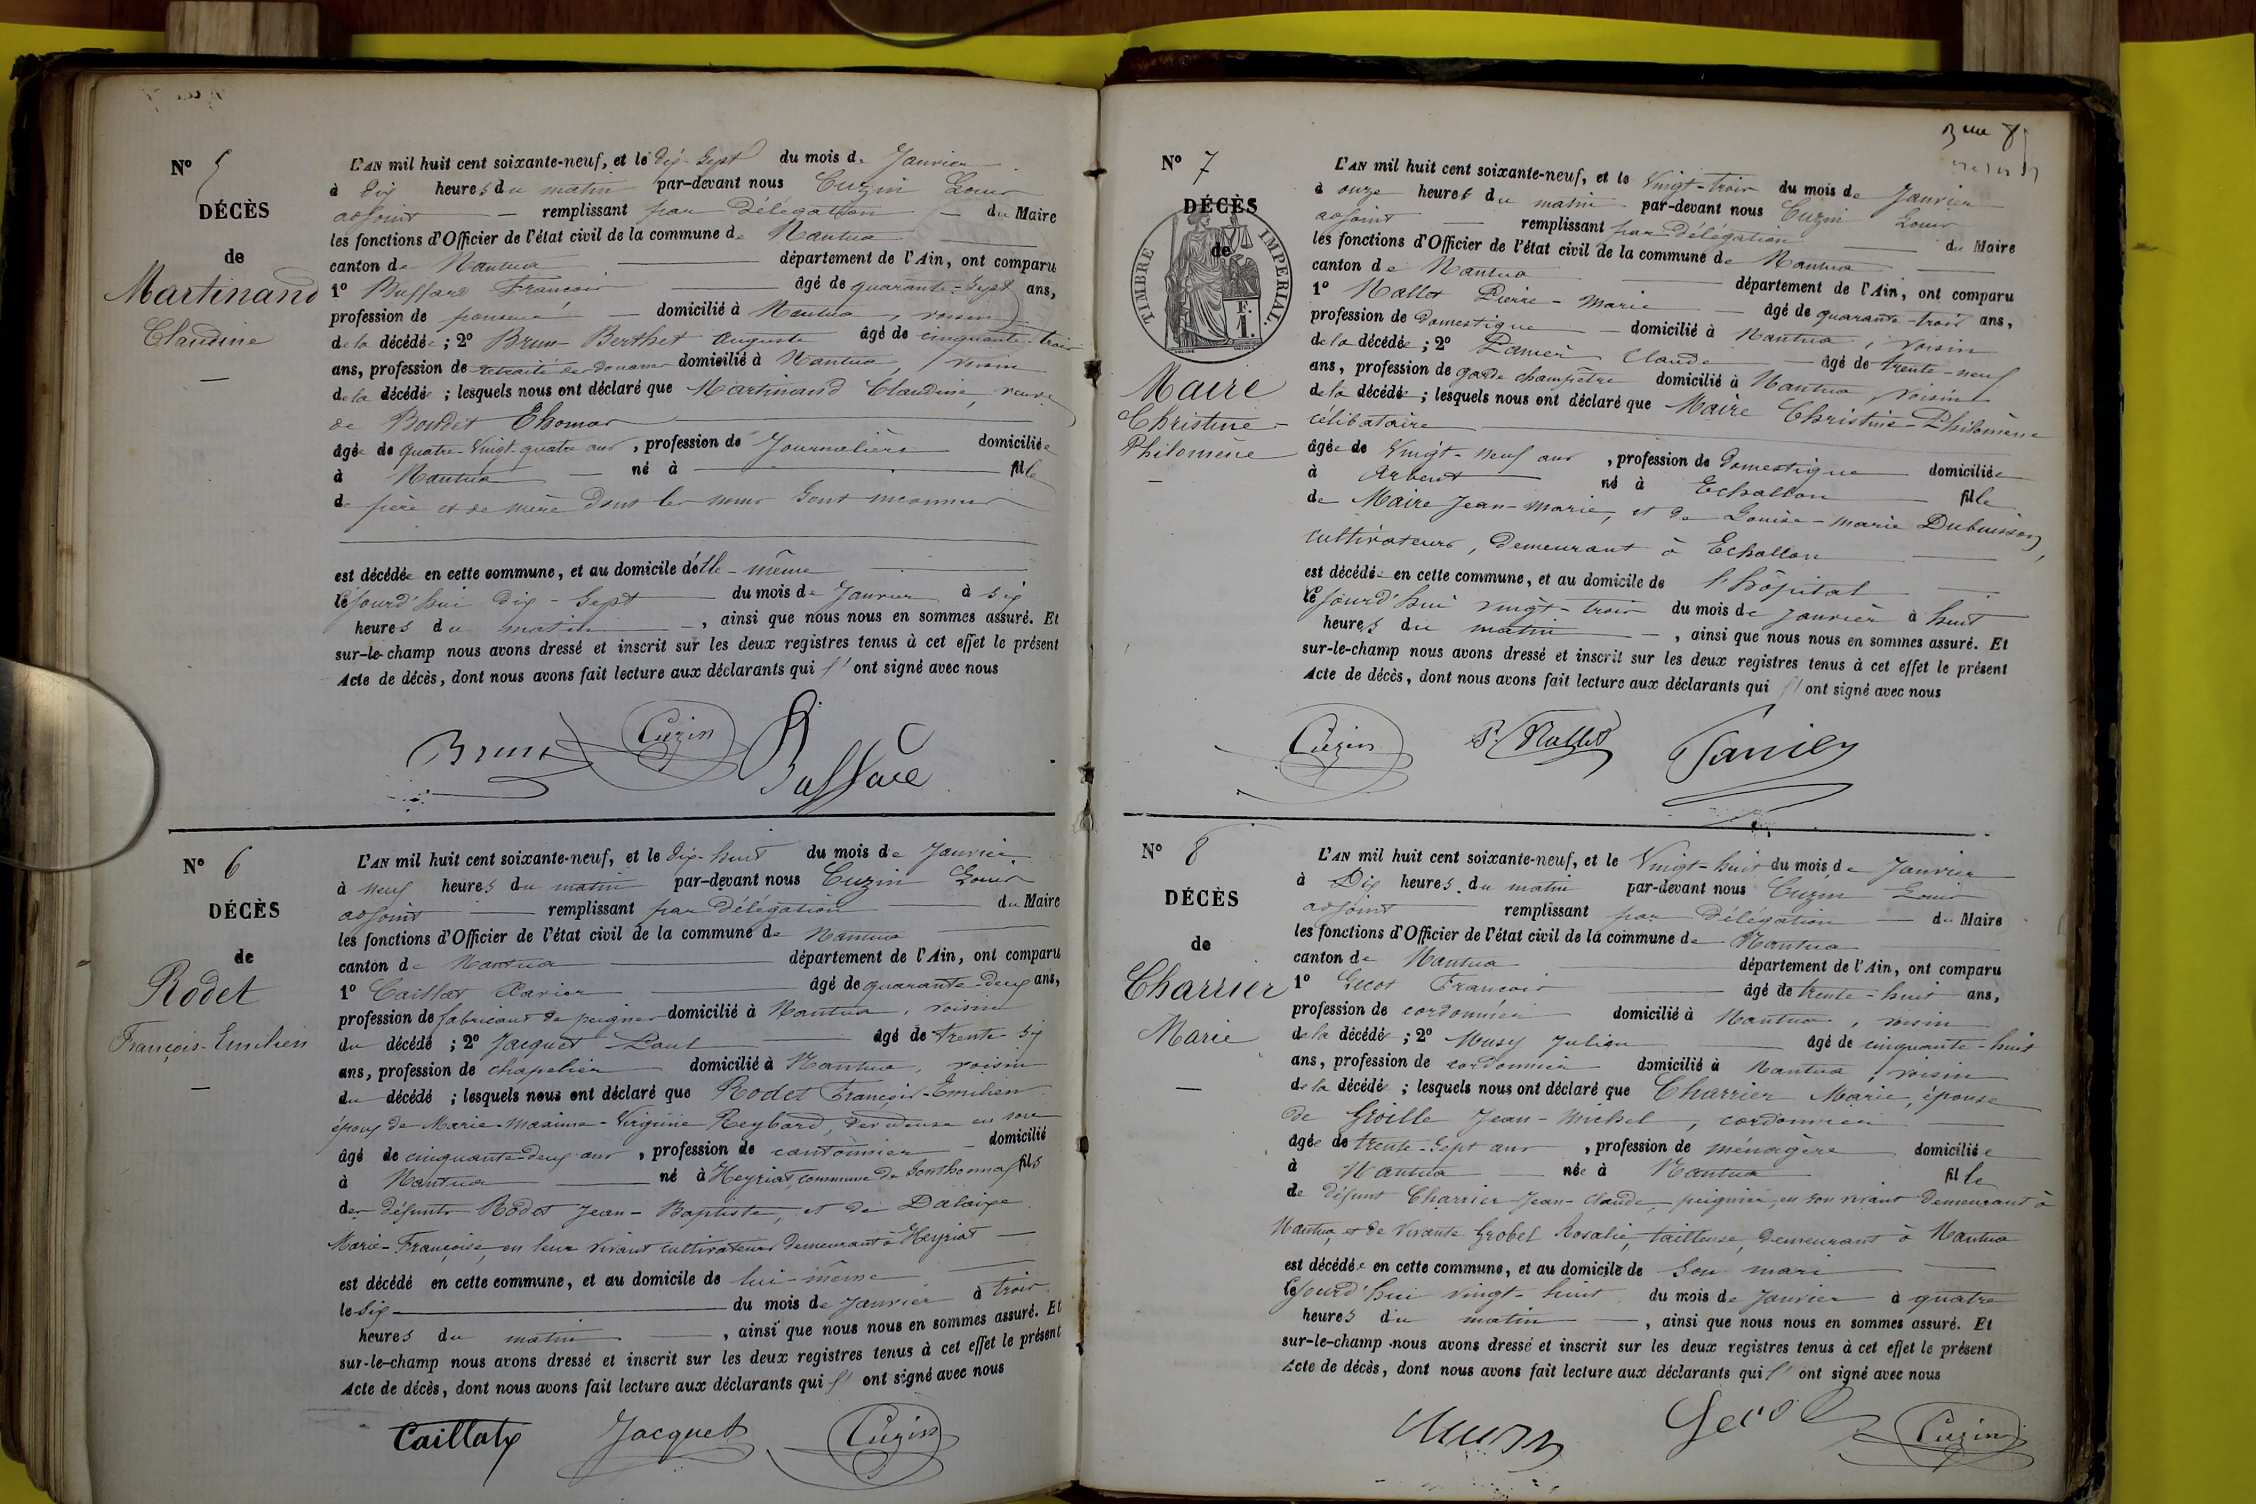 N° 5
DÉCÈS
de
Martinand
Claudine
L'AN mil huit cent soixante-neuf, et le dix-sept du mois de Janvier
à dix heures du matin par-devant nous Cuzin Louis
adjoint remplissant par délégation du Maire
les fonctions d'Officier de l'état civil de la commune de Nantua
canton de Nantua département de l'Ain, ont comparu
1° Buffard François âgé de quarante-sept ans,
profession de domicilié à Nantua, voisin
de la décédée ; 2° Brun Berthet Auguste âgé de cinquante-trois
ans, profession de retraité des douanes domicilié à Nantua, voisin
de la décédée ; lesquels nous ont déclaré que Martinand Claudine, veuve
de Boudet Thomas
âgée de quatre-vingt-quatre ans, profession de Journalière domiciliée
à Nantua né à fille
de père et de mère dont les noms sont inconnus
est décédée en cette commune, et au domicile d'elle-même
le jourd'hui dix-sept du mois de Janvier à six
heures du matin, ainsi que nous nous en sommes assuré. Et
sur-le-champ nous avons dressé et inscrit sur les deux registres tenus à cet effet le présent
Acte de décès, dont nous avons fait lecture aux déclarants qui l' ont signé avec nous
Brun Cuzin Buffard
N° 6
DÉCÈS
de
Rodet
François-Emilien
L'AN mil huit cent soixante-neuf, et le dix-huit du mois de Janvier
à neuf heures du matin par-devant nous Cuzin Louis
adjoint remplissant par délégation du Maire
les fonctions d'Officier de l'état civil de la commune de Nantua
canton de Nantua département de l'Ain, ont comparu
1° Caillat Xavier âgé de quarante-deux ans,
profession de fabricant de peignes domicilié à Nantua, voisin
du décédé ; 2° Jacquet Paul âgé de trente-six
ans, profession de chapelier domicilié à Nantua, voisin
du décédé ; lesquels nous ont déclaré que Rodet François-Emilien
époux de Marie-Maxime-Virginie Reybard,
âgé de cinquante-deux ans, profession de cantonnier domicilié
à Nantua né à Heyriat, commune de Sonthonnax fils
des défunts Rodet Jean-Baptiste, et de Dalaise
Marie-Françoise, en leur vivant cultivateurs demeurant à Heyriat
est décédé en cette commune, et au domicile de lui-même
le dix du mois de Janvier à trois
heures du matin, ainsi que nous nous en sommes assuré. Et
sur-le-champ nous avons dressé et inscrit sur les deux registres tenus à cet effet le présent
Acte de décès, dont nous avons fait lecture aux déclarants qui l' ont signé avec nous
Caillat Jacquet Cuzin
N° 7
DÉCÈS
de
TIMBRE IMPÉRIAL
Maire
Christine-
Philomène
L'AN mil huit cent soixante-neuf, et le Vingt-trois du mois de Janvier
à onze heures du matin par-devant nous Cuzin Louis
adjoint remplissant par délégation du Maire
les fonctions d'Officier de l'état civil de la commune de Nantua
canton de Nantua département de l'Ain, ont comparu
1° Nallet Pierre-Marie âgé de quarante-trois ans,
profession de domestique domicilié à Nantua, voisin
de la décédée ; 2° Claude âgé de trente-neuf
ans, profession de garde champêtre domicilié à Nantua, voisin
de la décédée ; lesquels nous ont déclaré que Maire Christine-Philomène
célibataire
âgée de Vingt-neuf ans, profession de domestique domiciliée
à Arbent né à Echallon fille
de Maire Jean-Marie, et de Louise-Marie Dubuisson,
cultivateurs, demeurant à Echallon
est décédée en cette commune, et au domicile de l'hôpital
le jourd'hui vingt-trois du mois de Janvier à huit
heures du matin, ainsi que nous nous en sommes assuré. Et
sur-le-champ nous avons dressé et inscrit sur les deux registres tenus à cet effet le présent
Acte de décès, dont nous avons fait lecture aux déclarants qui l' ont signé avec nous
Cuzin P. Nallet
N° 8
DÉCÈS
de
Charrier
Marie
L'AN mil huit cent soixante-neuf, et le Vingt-huit du mois de Janvier
à Dix heures du matin par-devant nous Cuzin Louis
adjoint remplissant par délégation du Maire
les fonctions d'Officier de l'état civil de la commune de Nantua
canton de Nantua département de l'Ain, ont comparu
1° Gecot François âgé de trente-huit ans,
profession de cordonnier domicilié à Nantua, voisin
de la décédée ; 2° Musy Julien âgé de cinquante-huit
ans, profession de cordonnier domicilié à Nantua, voisin
de la décédée ; lesquels nous ont déclaré que Charrier Marie, épouse
de Groille Jean-Michel, cordonnier
âgée de trente-sept ans, profession de ménagère domiciliée
à Nantua née à Nantua fille
de défunt Charrier Jean-Claude, peignier, en son vivant demeurant à
Nantua, et de vivante Grobel Rosalie, tailleuse, demeurant à Nantua
est décédée en cette commune, et au domicile de son mari
le jourd'hui vingt-huit du mois de Janvier à quatre
heures du matin, ainsi que nous nous en sommes assuré. Et
sur-le-champ nous avons dressé et inscrit sur les deux registres tenus à cet effet le présent
Acte de décès, dont nous avons fait lecture aux déclarants qui l' ont signé avec nous
Musy Gecot Cuzin